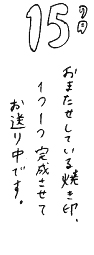 15日(月)
おまたせしている焼き印、
1つ1つ完成させて
お送り中です。